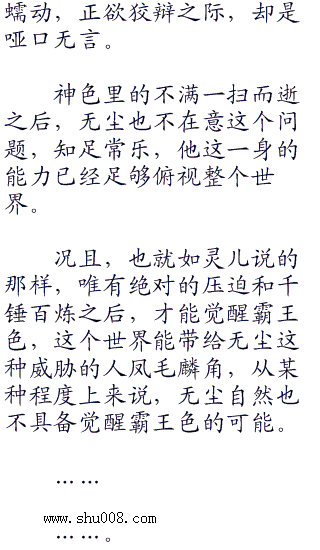 蠕动，正欲狡辩之际，却是
哑口无言。
神色里的不满一扫而逝
之后，无尘也不在意这个问
题，知足常乐，他这一身的
能力已经足够俯视整个世
界。
况且，也就如灵儿说的
那样，唯有绝对的压迫和千
锤百炼之后，才能觉醒霸王
色，这个世界能带给无尘这
种威胁的人凤毛麟角，从某
种程度上来说，无尘自然也
不具备觉醒霸王色的可能。
……
www.shu008.com
……。